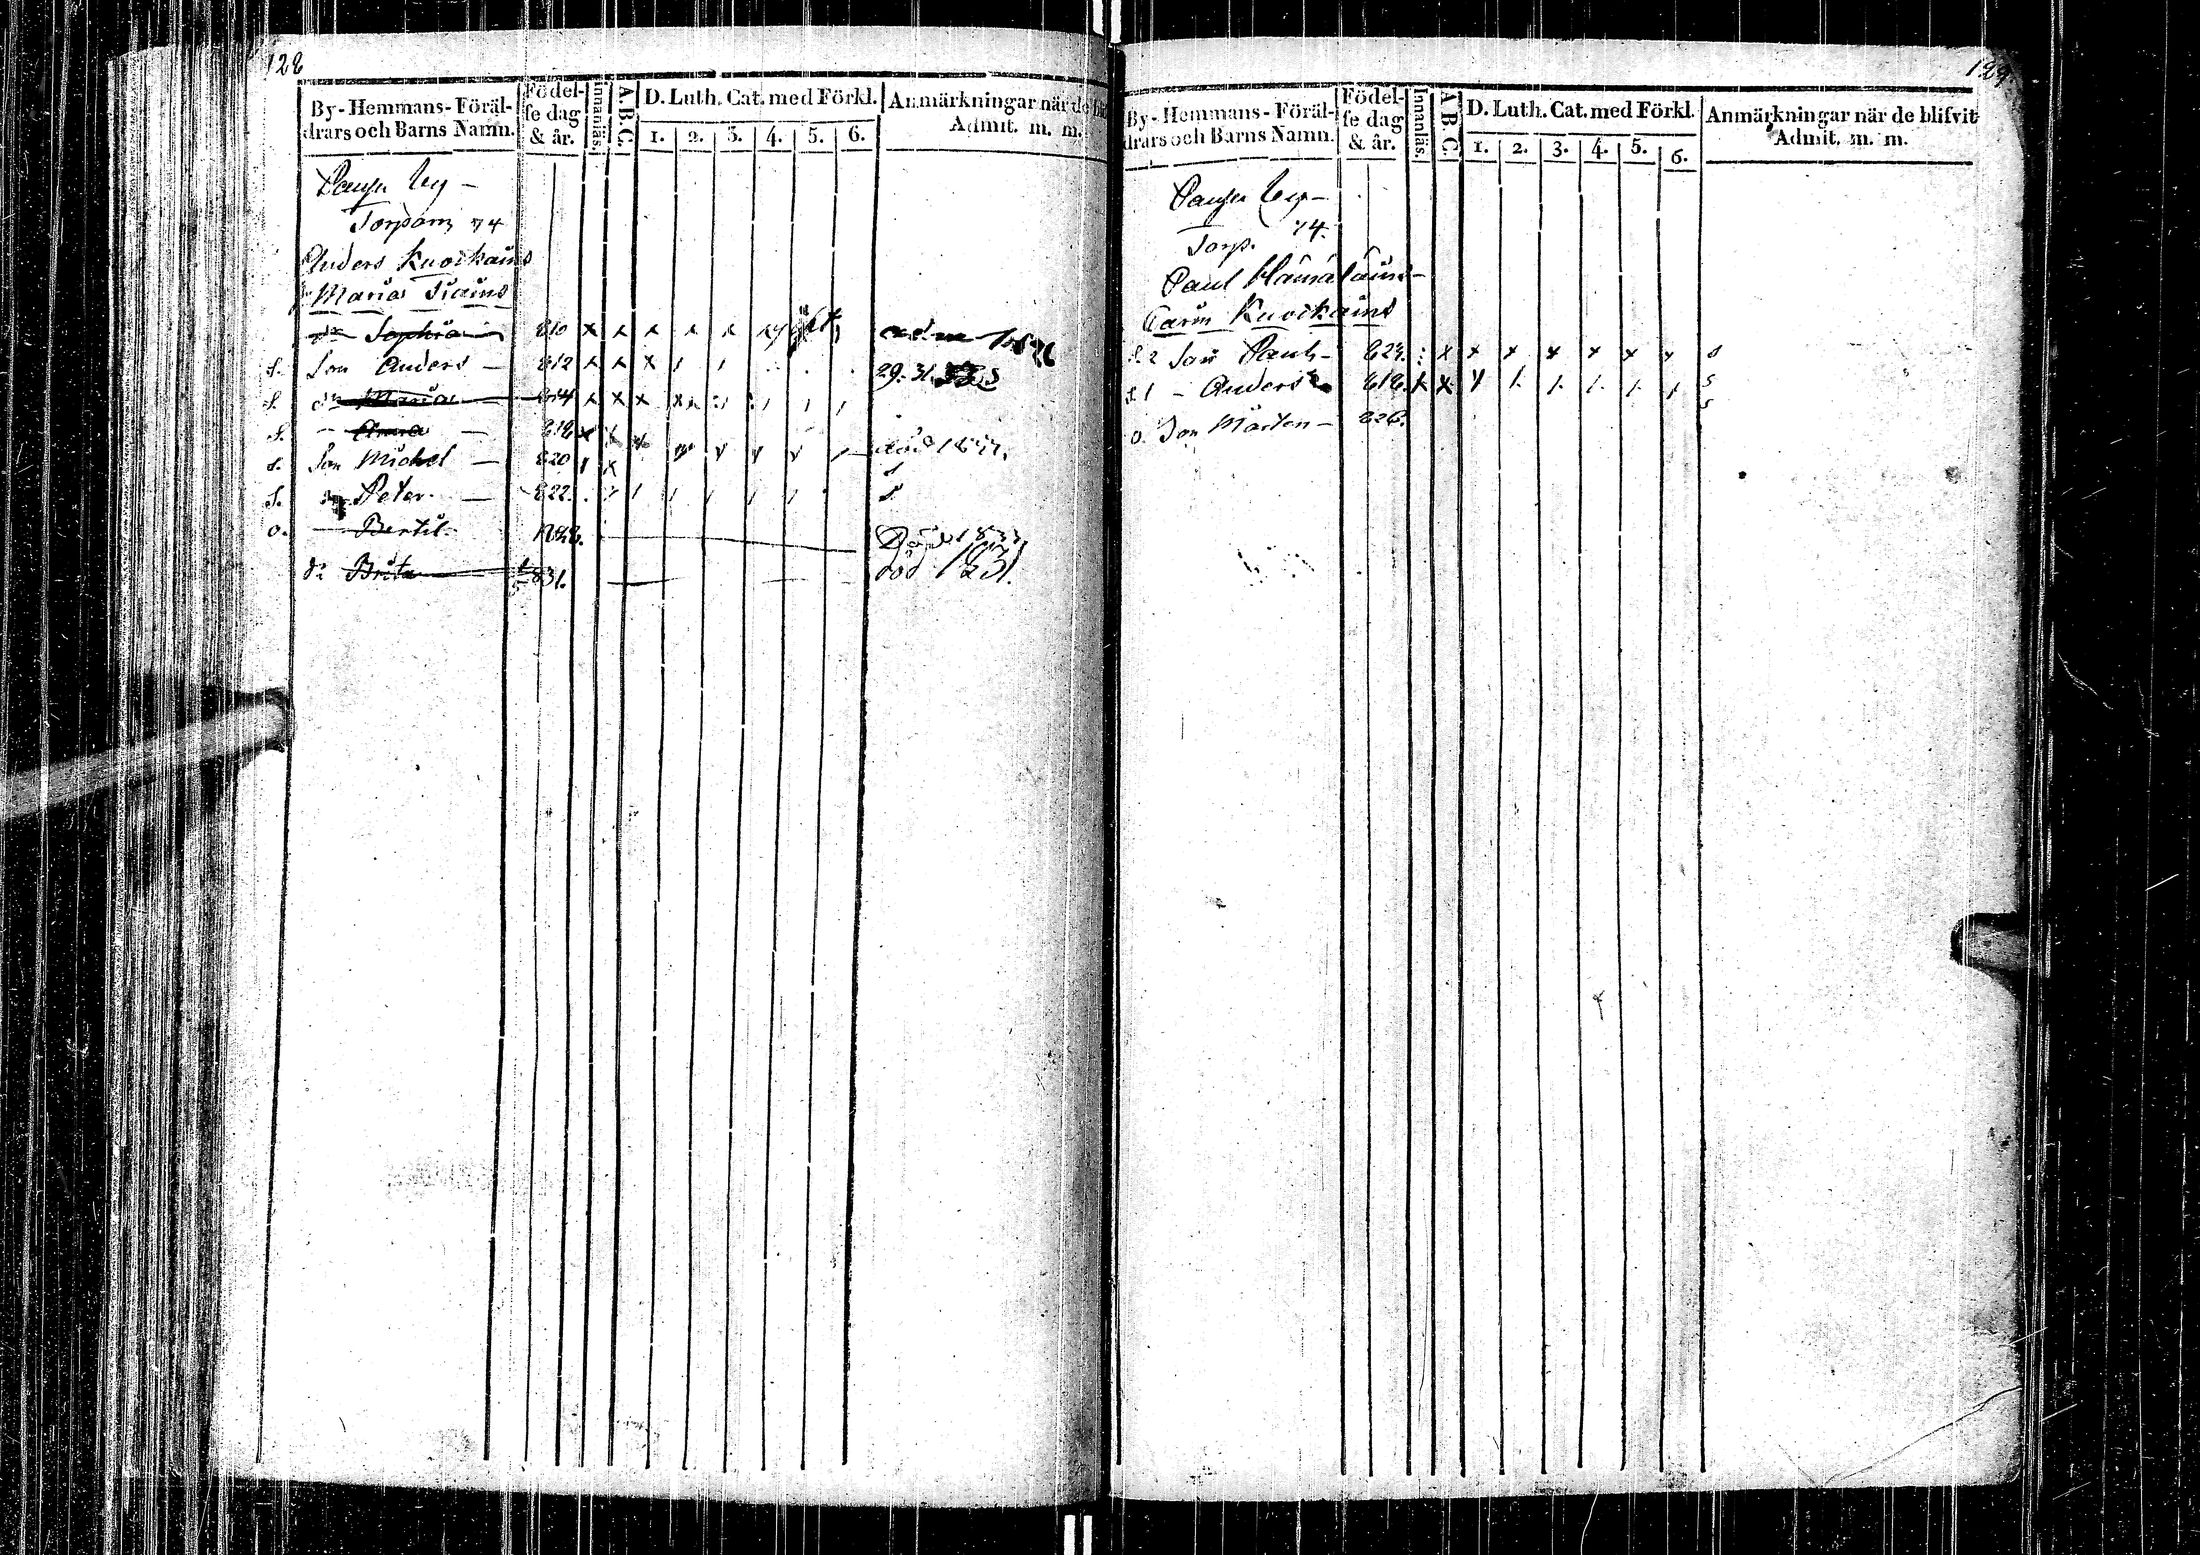 128
By-Hemmans-Föräl-
drars och Barns Namn.
Födel-
se dag
& år.
Innanläs.
A. B. C.
D. Luth. Cat. med Förkl.
1. 2. 3. 4. 5. 6.
Anmärkningar när de bli
Admit. m. m.
by –
Torpare 74
Anders Kuoikains
Maria Tiains
dr Sophia 810 x x x x x
s. Son Anders – 812 x x x 29. 31.
s. dr Maria 814 x x x
s. – Anna – 818 x
s. Son Michel – 820 död
s. Peter – 822
o. Bertil 1828. Död 1833
dr Brita 831. död 1831.
129.
By-Hemmans-Föräl-
drars och Barns Namn.
Födel-
se dag
& år.
Innanläs.
A. B. C.
D. Luth. Cat. med Förkl.
1. 2. 3. 4. 5. 6.
Anmärkningar när de blifvit
Admit. m. m.
by –
Torp. 74.
Paul Hämäläins –
Carin Kuoikains
s. 2 Son Paul – 823. x x x x x x x s
s. 1 – Anders 818. x x s
o. Son Mårten – 826.